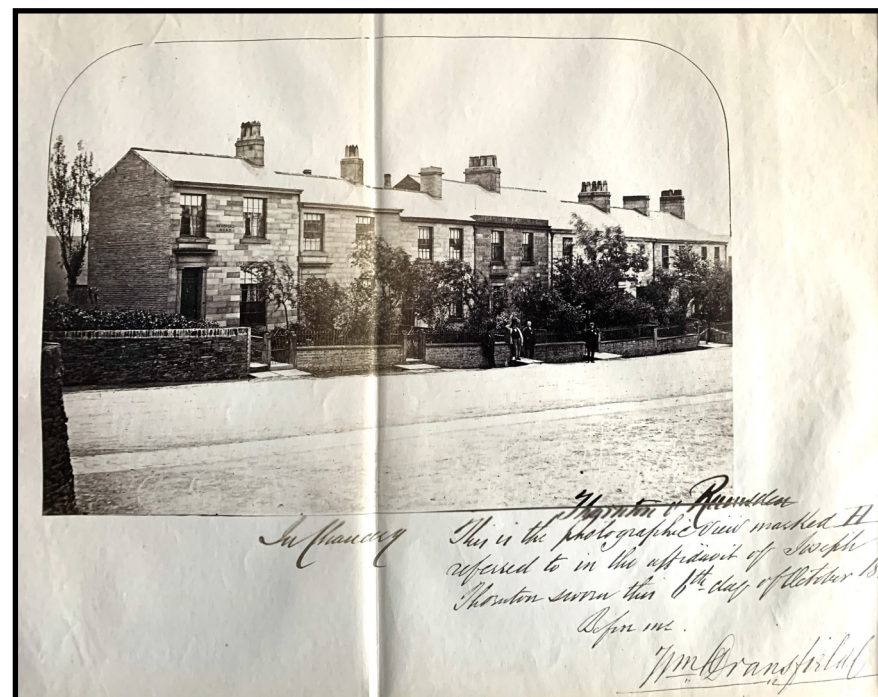 Thornton v Ramsden
In Chancery
This is the photographic view marked H
referred to in the affidavit of Joseph
Thornton sworn this 6th day of October 18
Before me.
Wm Dransfield